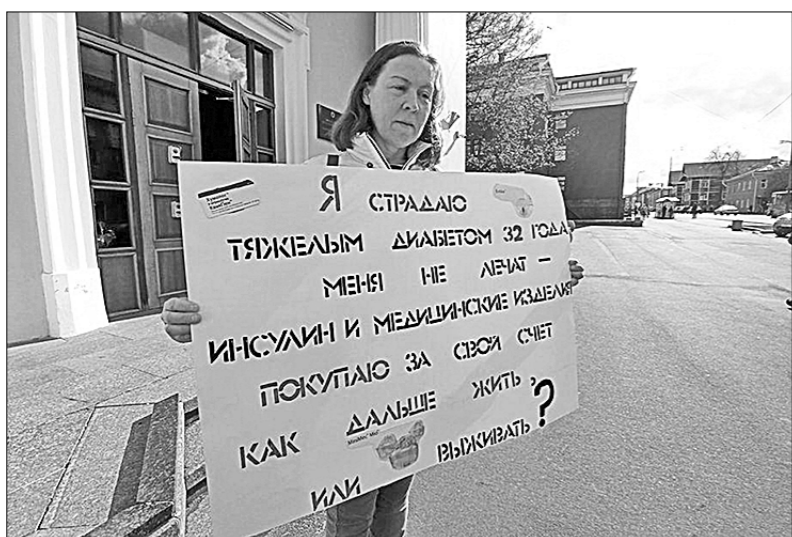 Я СТРАДАЮ
ТЯЖЕЛЫМ ДИАБЕТОМ 32 ГОДА
МЕНЯ НЕ ЛЕЧАТ –
ИНСУЛИН И МЕДИЦИНСКИЕ ИЗДЕЛИЯ
ПОКУПАЮ ЗА СВОЙ СЧЕТ
КАК ДАЛЬШЕ ЖИТЬ,
ИЛИ ВЫЖИВАТЬ?